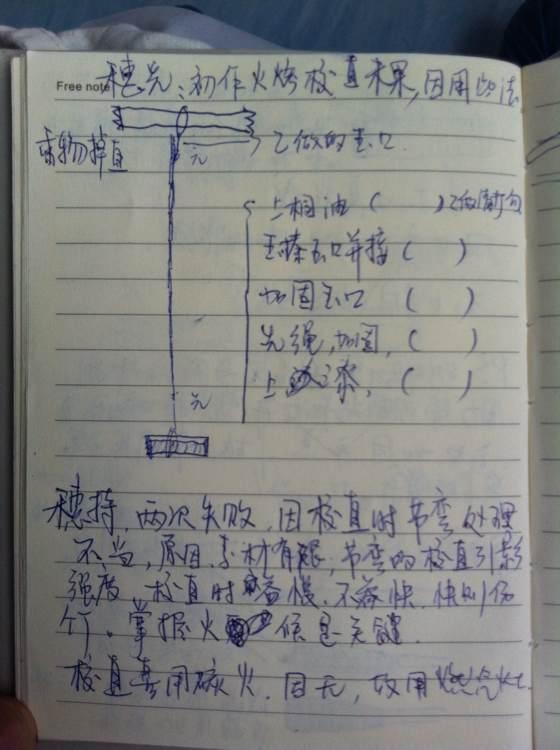 Free note
穗先:初作火烤校直未果,因用此法
重物掉直
元 → 已做的玉口
上相油 ( ) 已做
玉口并接 ( )
加固玉口 ( )
先绳,加固,( )
上漆,( )
元
穗持 两次失败,因校直时节弯处理
不当,原因,素材有限,节弯的校直引影
强度,校直时慢,不能快,快则伤
竹,掌握火候是关键.
校直喜用碳火,因无,故用燃气灶.